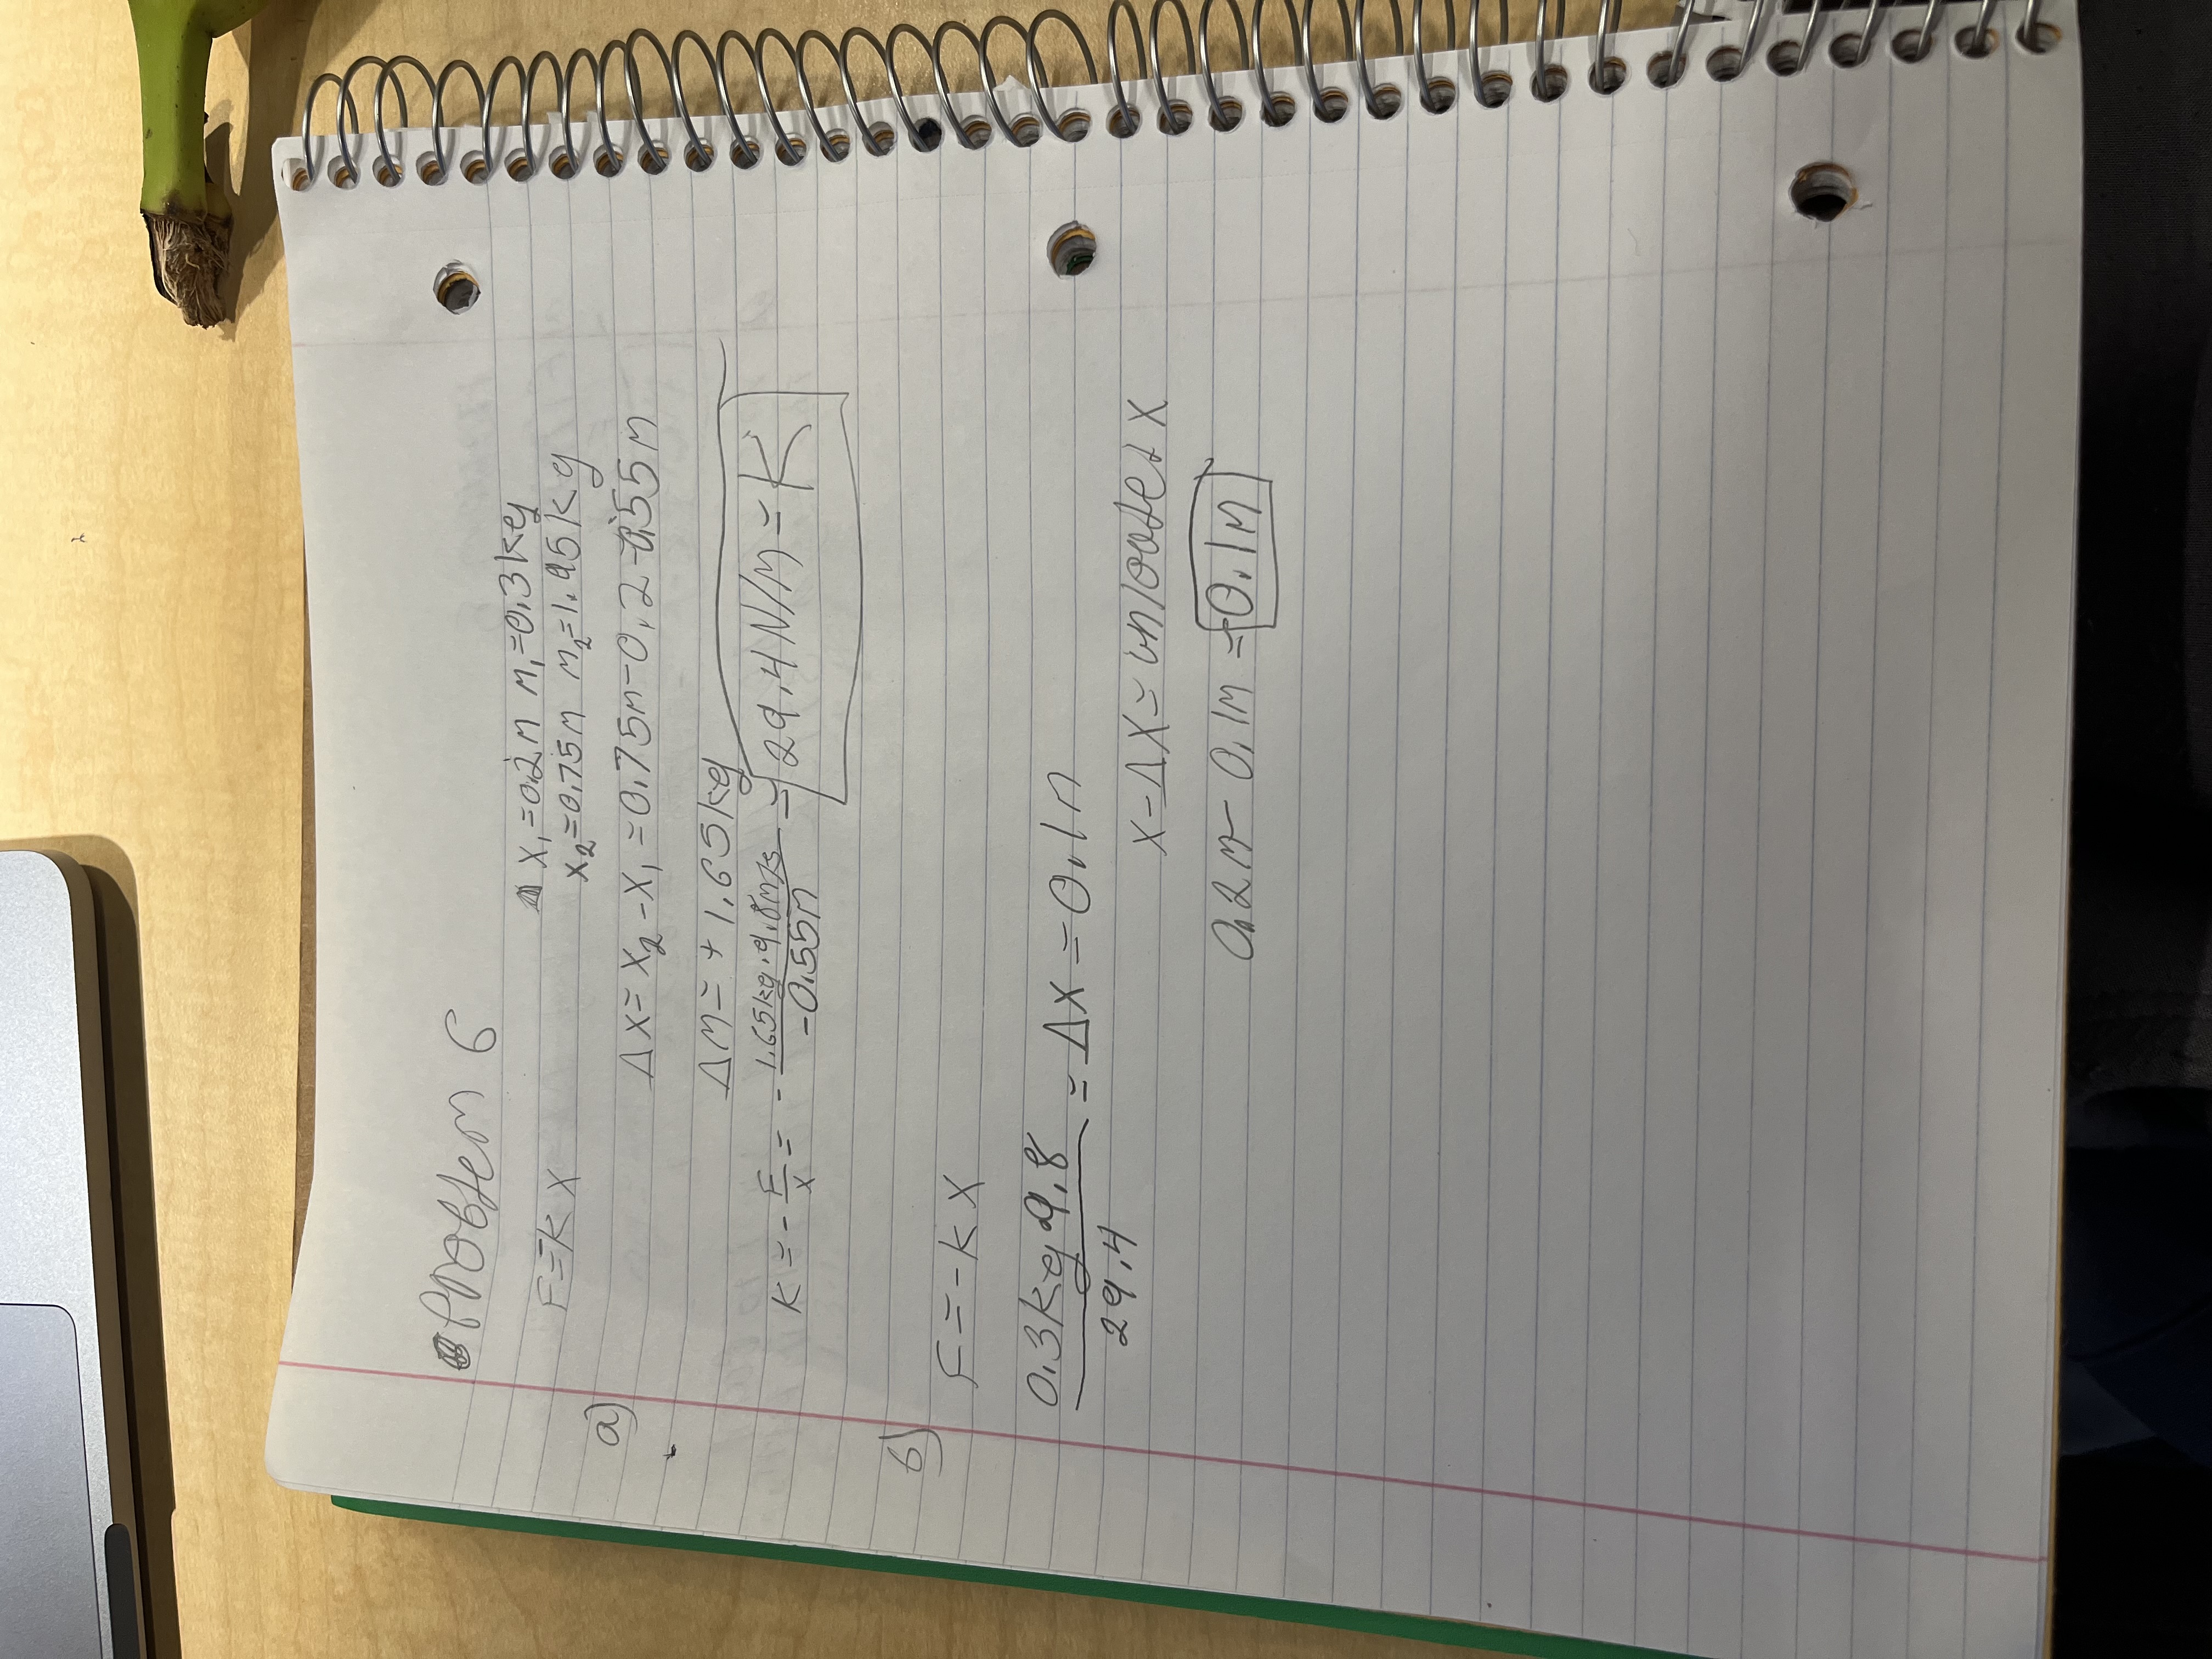 Problem 6
x₁=0.2m m₁=0.3kg
F=kx
x₂=0.75m m₂=1.95kg
a)
Δx=x₂-x₁=0.75m-0.2=0.55m
ΔM=+1.65kg
K=-F/x=-1.65kg·9.8m/s/-0.55m=29.4N/M=K
b)
F=-kx
0.3kg·9.8/29.4=Δx=0.1m
x-Δx= x
0.2m-0.1m=0.1m